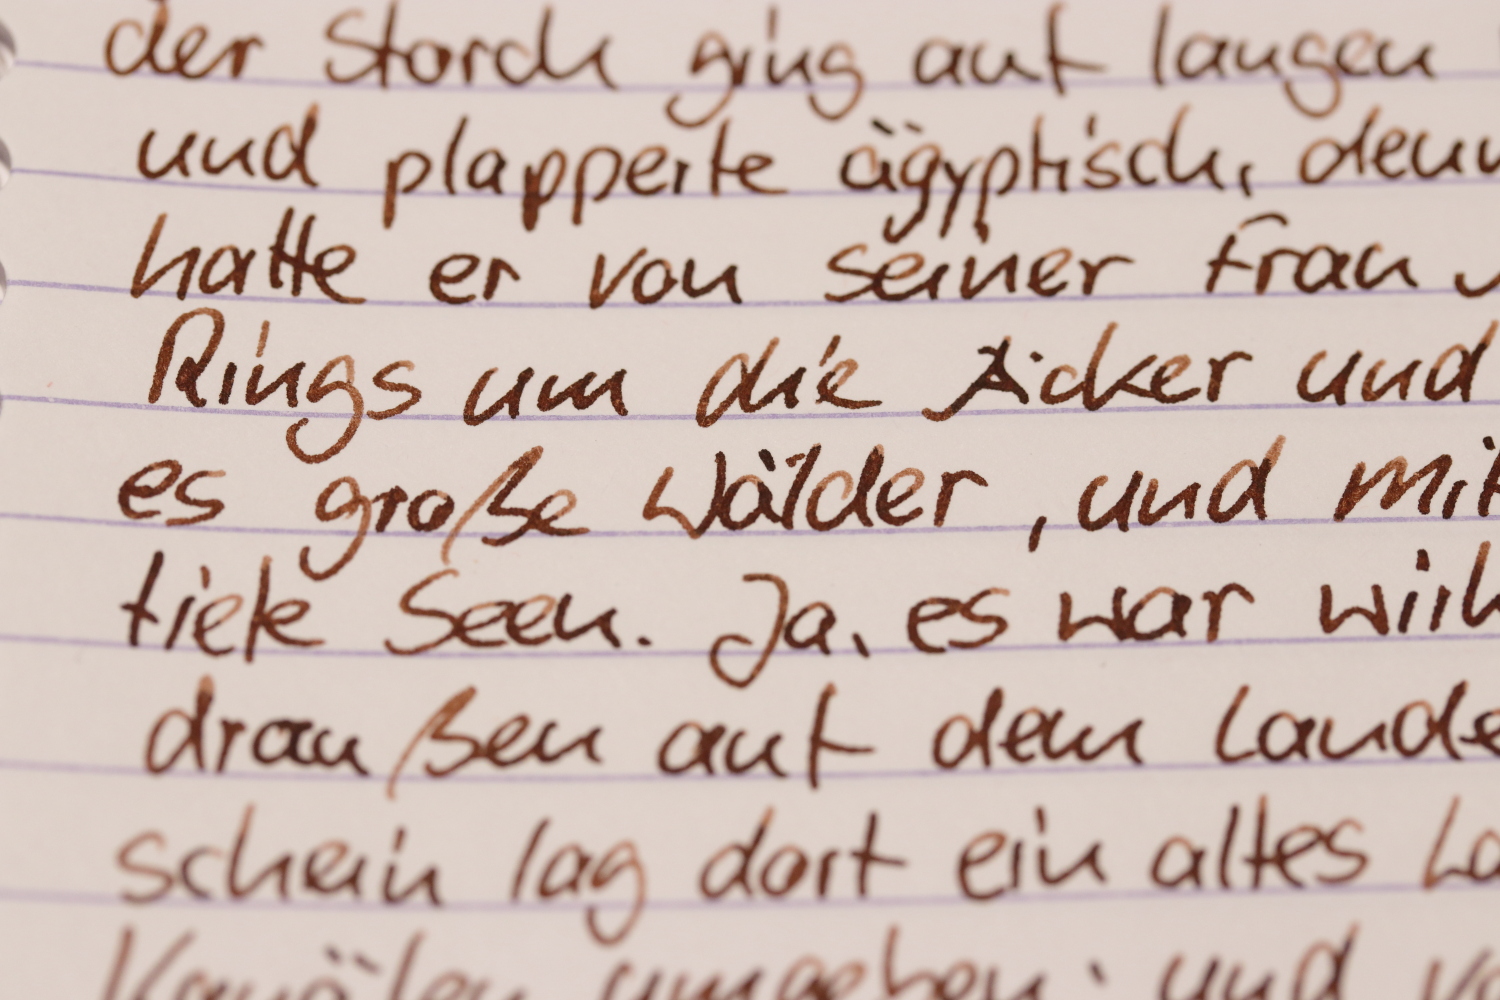 der Storch ging auf langen
und plapperte ägyptisch, denn
hatte er von seiner Frau
Rings um die Äcker und
es große Wälder, und mit
tiefe Seen. Ja, es war wirk
draußen auf dem Lande
schein lag dort ein altes La
Kanälen umgeben, und vo